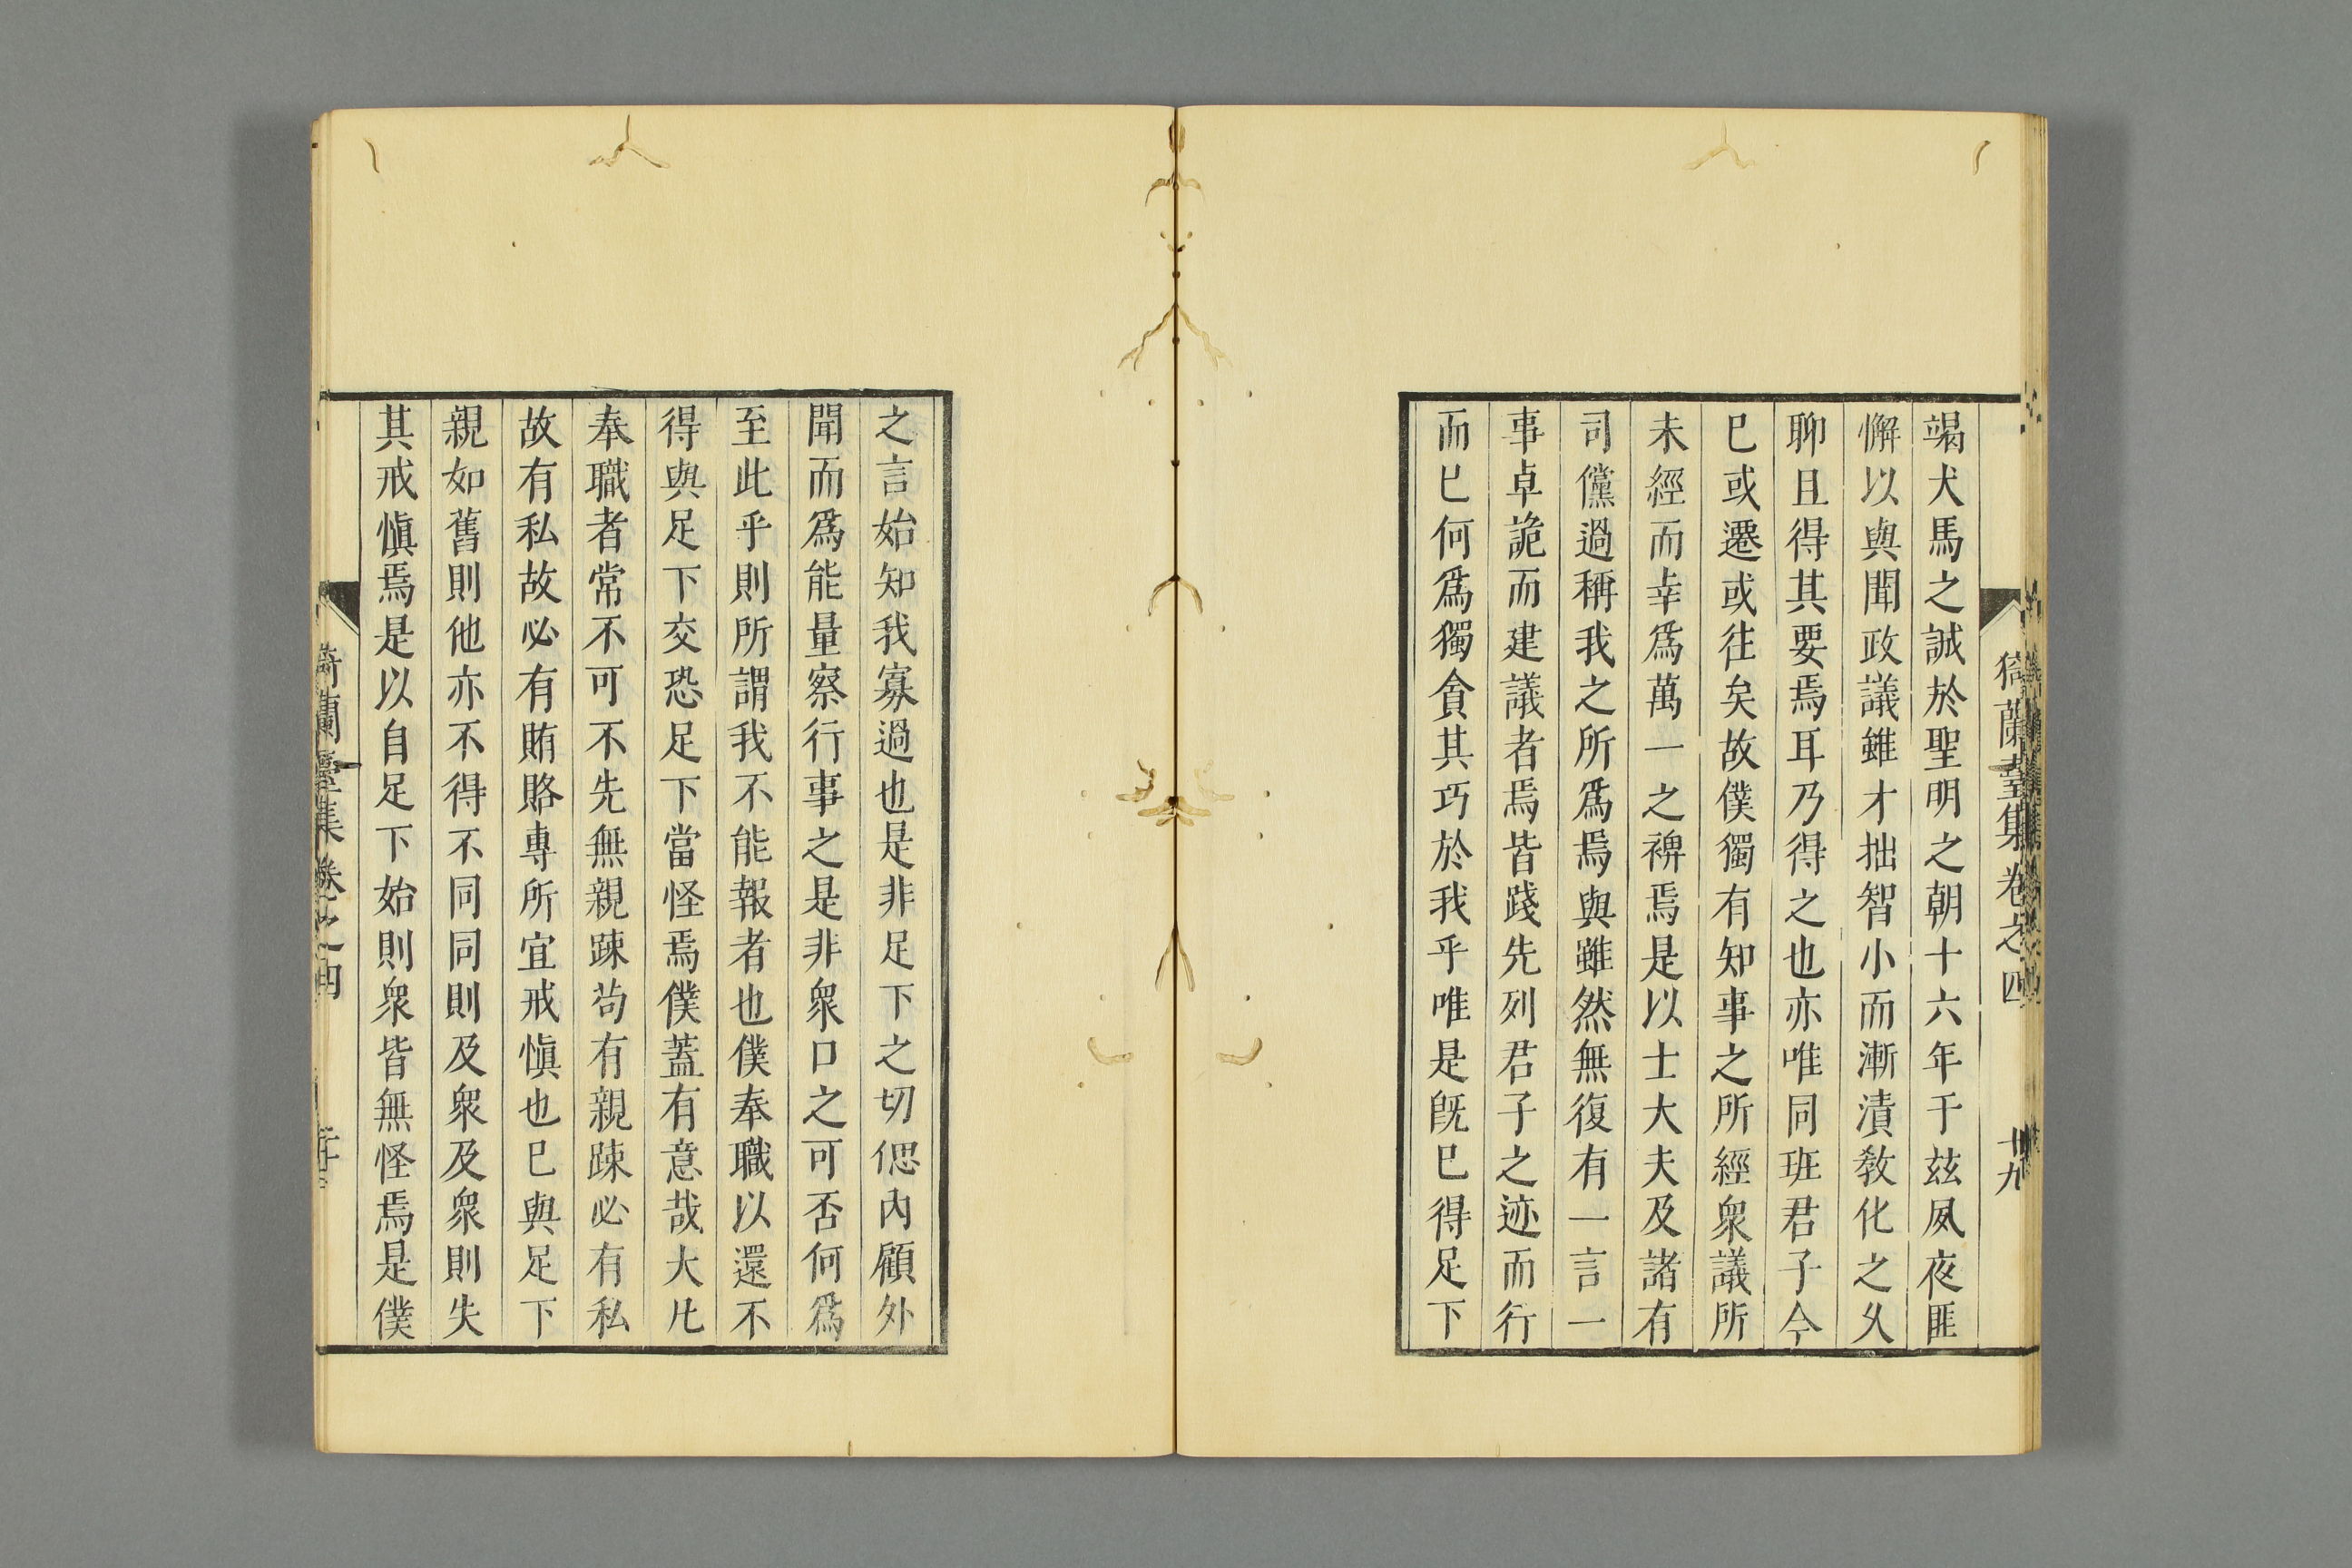 猗蘭臺集卷之四
廿九
竭犬馬之誠於聖明之朝十六年于兹夙夜匪
懈以與聞政議雖才拙智小而漸漬教化之久
聊且得其要焉耳乃得之也亦唯同班君子今
已或遷或往矣故僕獨有知事之所經衆議所
未經而幸爲萬一之裨焉是以士大夫及諸有
司儻過稱我之所爲焉與雖然無復有一言一
事卓詭而建議者焉皆踐先列君子之迹而行
而已何爲獨貪其巧於我乎唯是既已得足下
之言始知我寡過也是非足下之切偲內顧外
聞而爲能量察行事之是非衆口之可否何爲
至此乎則所謂我不能報者也僕奉職以還不
得與足下交恐足下當怪焉僕蓋有意哉大凡
奉職者常不可不先無親踈苟有親踈必有私
故有私故必有賄賂專所宜戒愼也已與足下
親如舊則他亦不得不同同則及衆及衆則失
其戒愼焉是以自足下始則衆皆無怪焉是僕
猗蘭臺集卷之四